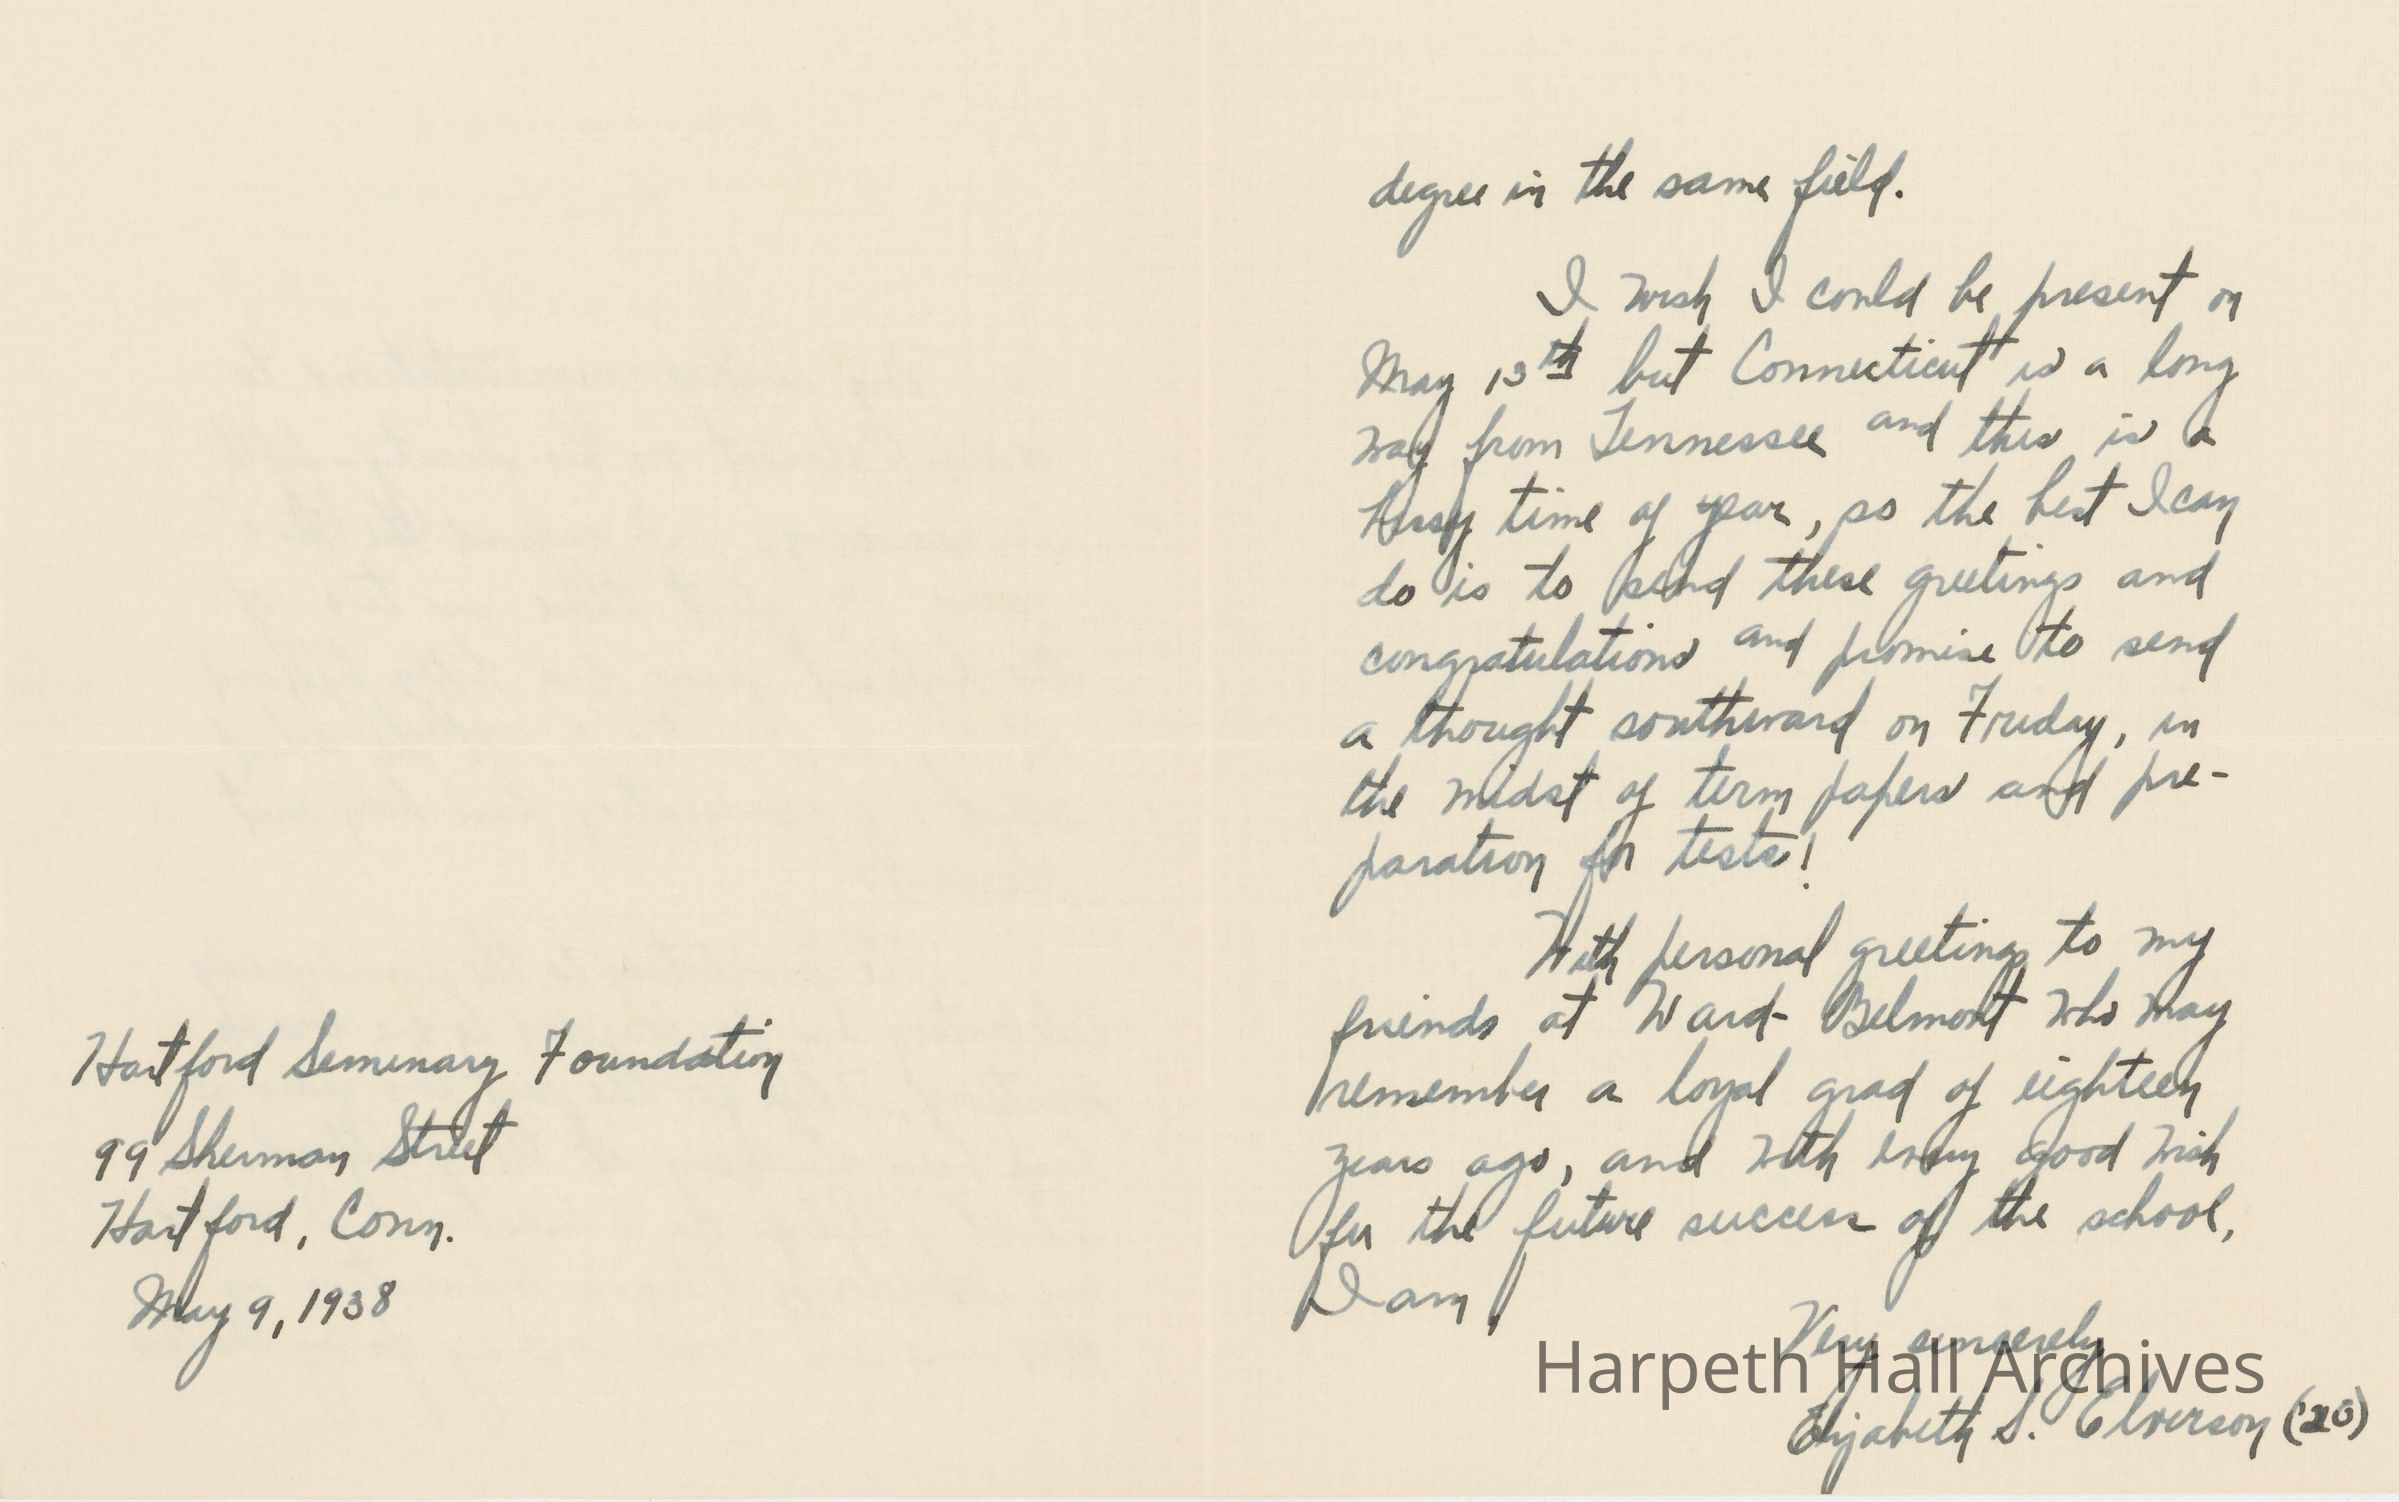 degree in the same field.
I wish I could be present on
May 13th but Connecticut is a long
way from Tennessee and this is a
busy time of year, so the best I can
do is to send these greetings and
congratulations and promise to send
a thought southward on Friday, in
the midst of term papers and pre-
paration for tests!
With personal greetings to my
friends at Ward-Belmont who may
remember a loyal grad of eighteen
years ago, and with every good wish
for the future success of the school,
I am,
Very sincerely
Elizabeth S. Elverson ('20)
Hartford Seminary Foundation
99 Sherman Street
Hartford, Conn.
May 9, 1938
Harpeth Hall Archives